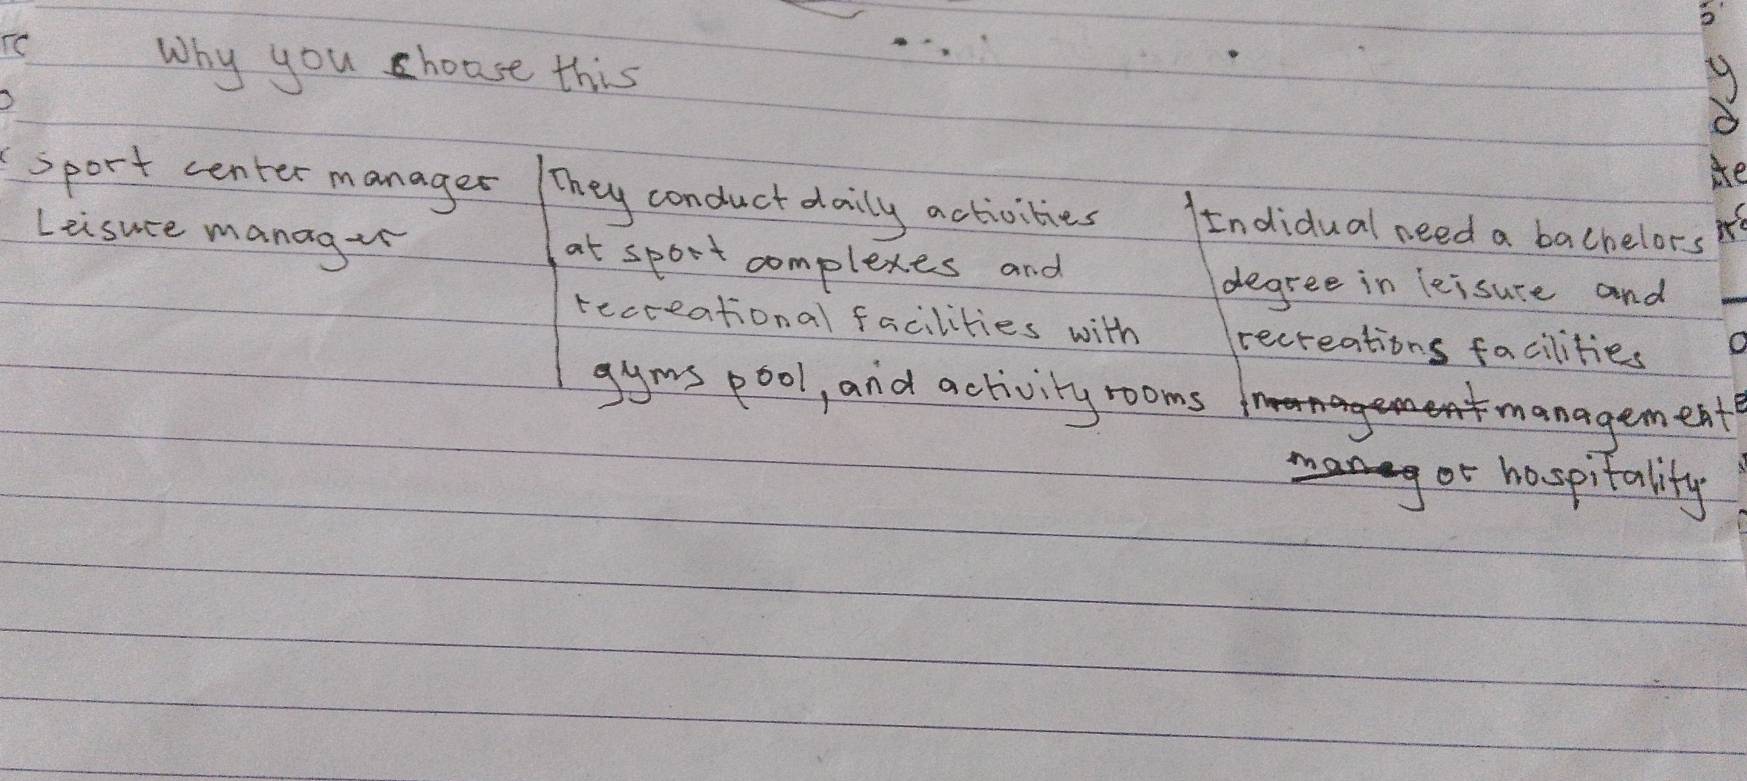 Why you choose this
Sport center manager
Leisure manager
They conduct daily activities
at sport complexes and
recreational facilities with
gyms pool, and activity rooms
Indidual need a bachelors
degree in leisure and
recreations facilities
management management
maneg or hospitality